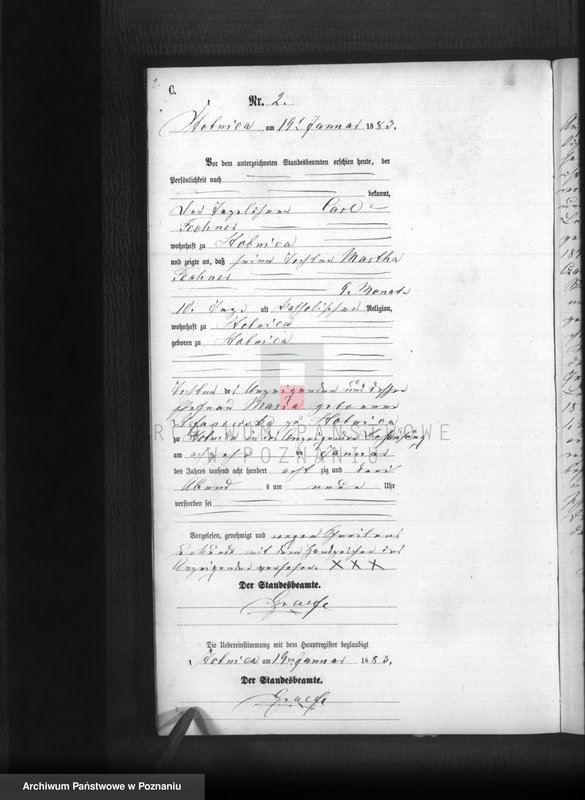 2.
C.
Nr. 2.
Kobnica am 19t Januar 1883.
Vor dem unterzeichneten Standesbeamten erschien heute, der
Persönlichkeit nach
bekannt,
Der Tagelöhner Carl
Fechner
wohnhaft zu Kobnica
und zeigte an, daß seine Tochter Martha
Fechner
9. Monate
10. Tage alt katholischer Religion,
wohnhaft zu Kobnica
geboren zu Kobnica
Tochter des Anzeigenden und dessen
Ehefrau Maria geborene
zu Kobnica
zu Kobnica in des Anzeigenden Behausung
am Januar
des Jahres tausend acht hundert acht zig und drei
Abend s um neun Uhr
verstorben sei
Vorgelesen, genehmigt und wegen Schreibens
mit dem Handzeichen des
Anzeigenden versehen. XXX
Der Standesbeamte.
Graefe
Die Uebereinstimmung mit dem Hauptregister beglaubigt
Kobnica am 19ten Januar 1883.
Der Standesbeamte.
Graefe
ARCHIWUM PAŃSTWOWE
W POZNANIU
Archiwum Państwowe w Poznaniu